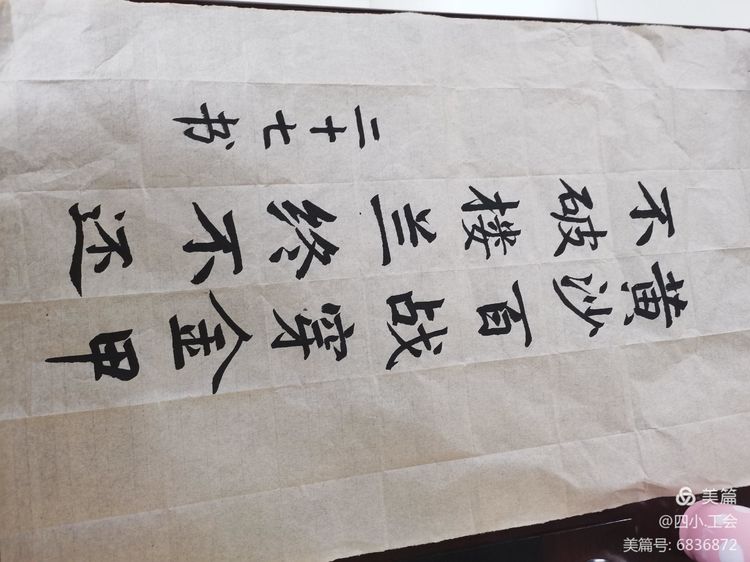 黄沙百战穿金甲
不破楼兰终不还
二十七书
美篇
@四小.工会
美篇号: 6836872